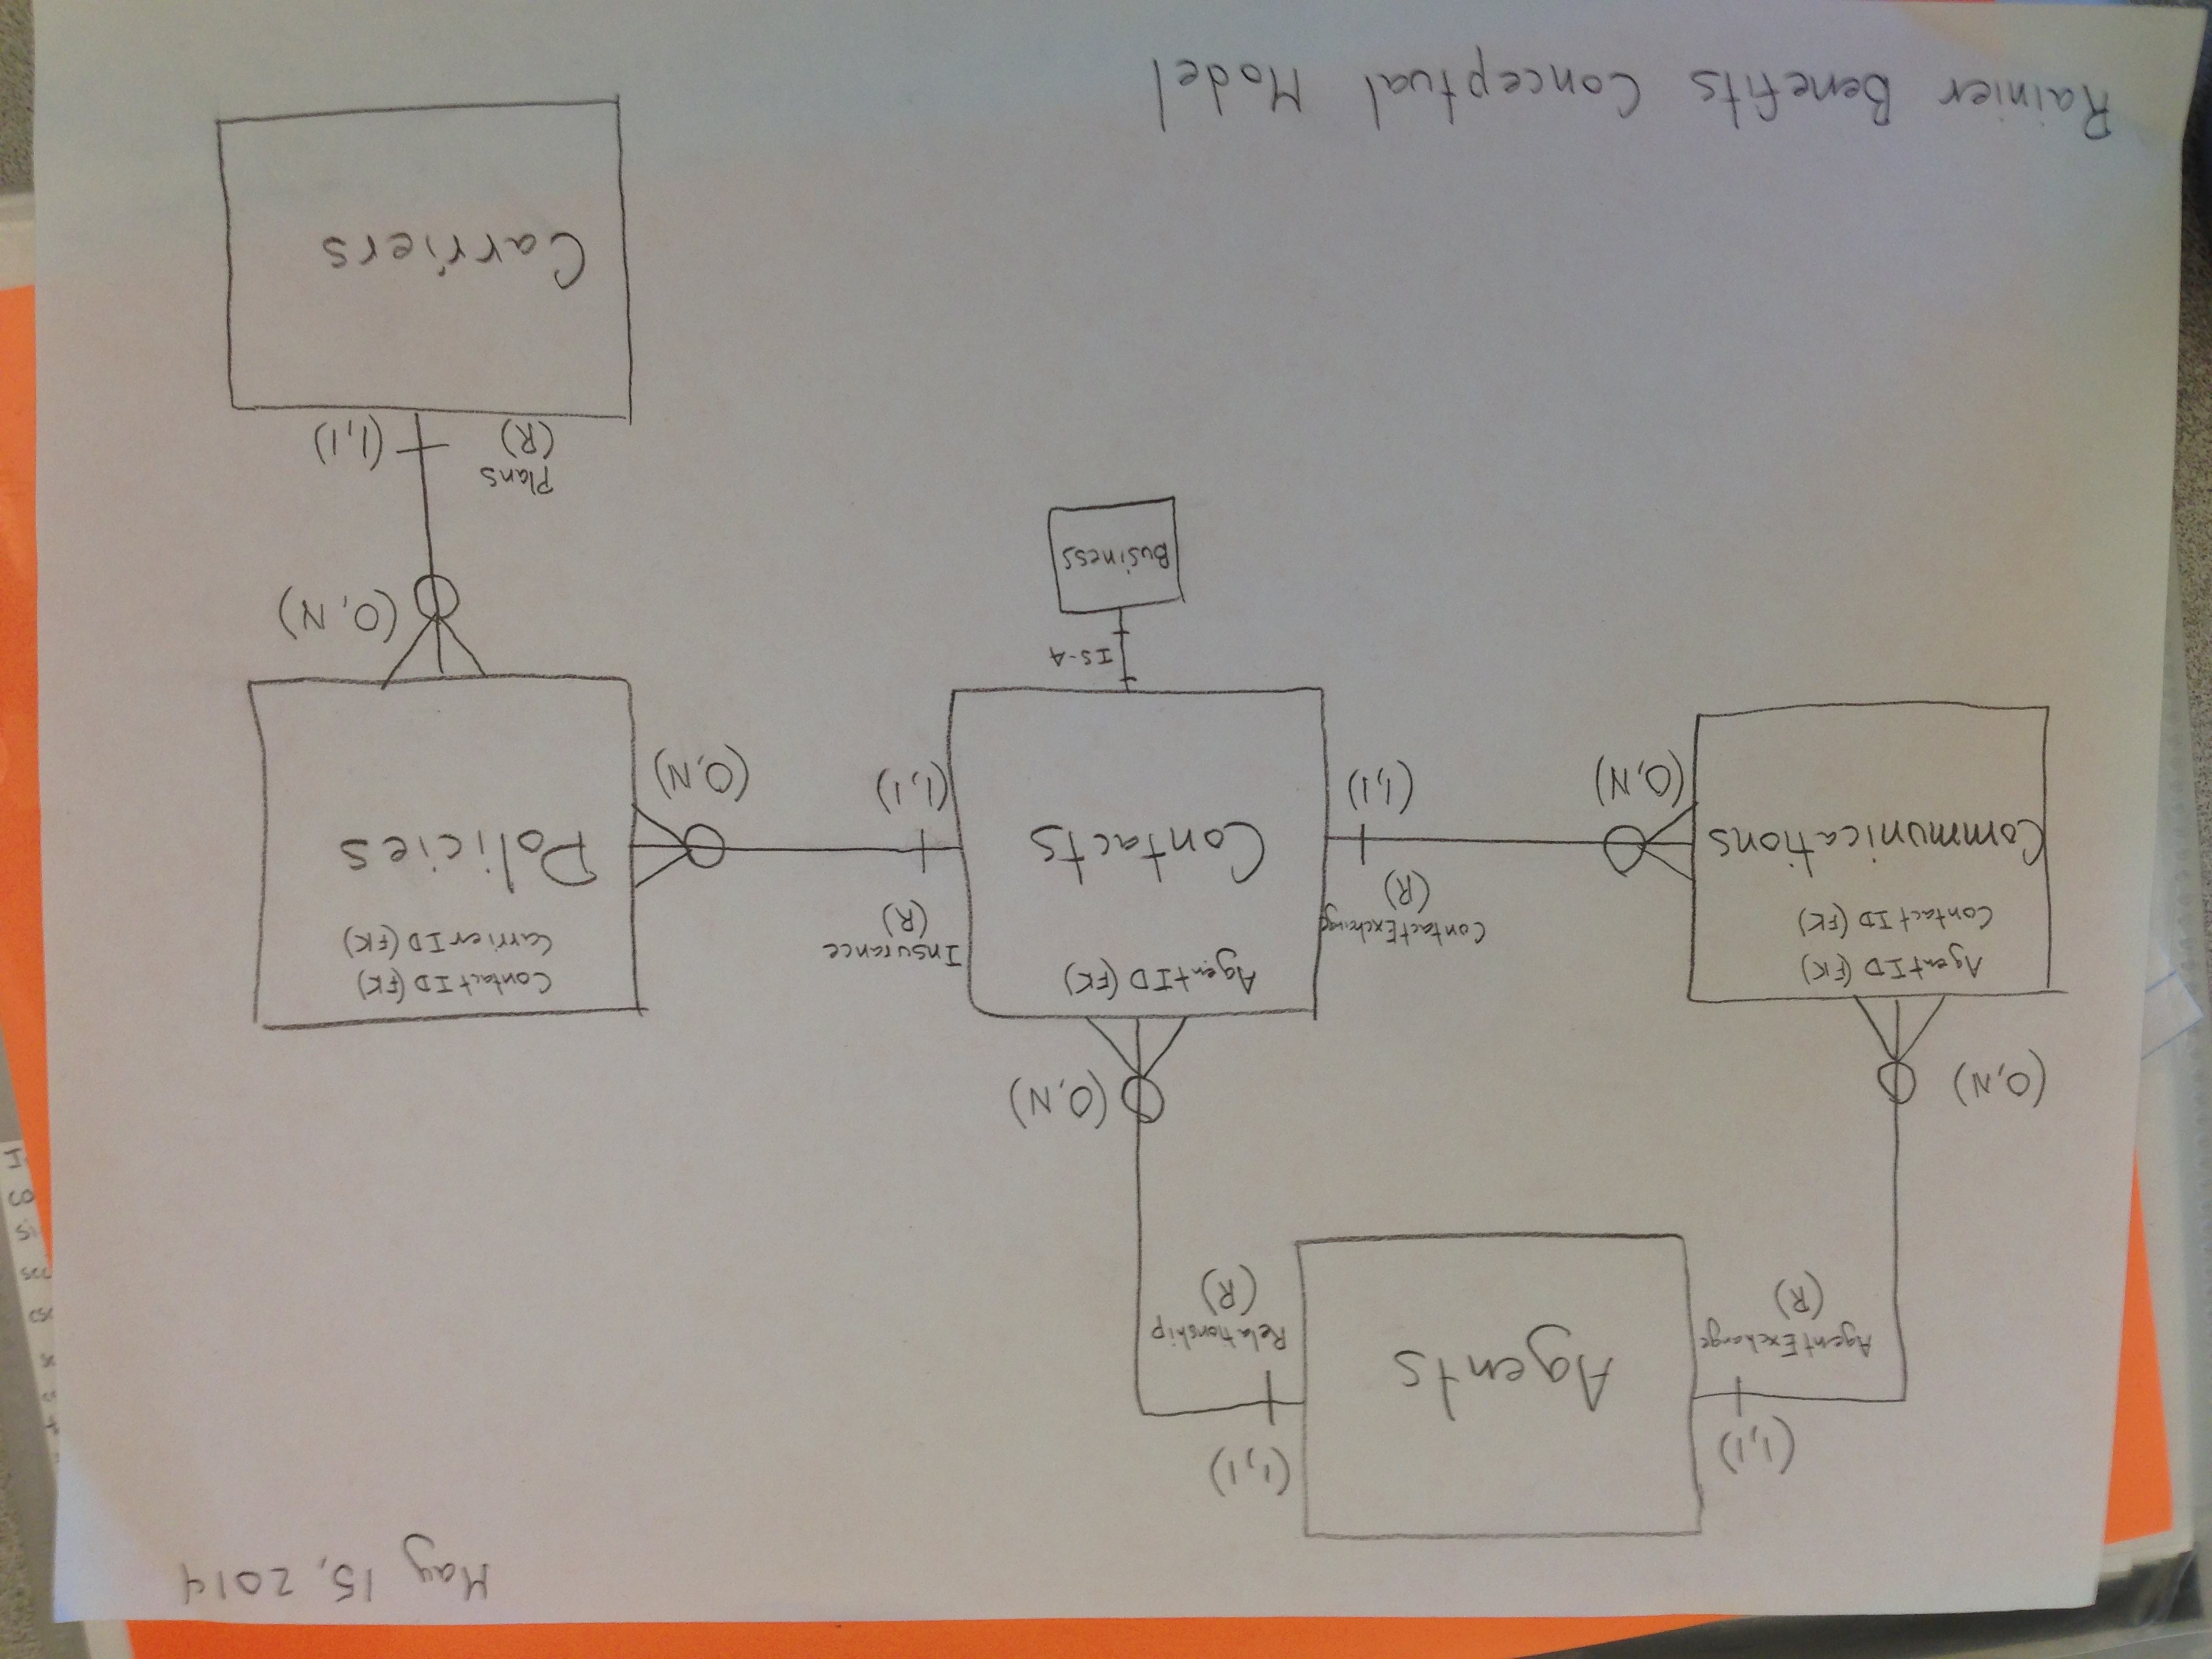 May 15, 2014
(1,1)
(1,1)
Agents
AgentExchange
(R)
Relationship
(R)
(0,N)
(0,N)
AgentID (FK)
ContactID (FK)
Communications
(0,N)
ContactExchange
(R)
(1,1)
AgentID (FK)
Contacts
Insurance
(R)
(1,1)
(0,N)
ContactID (FK)
CarrierID (FK)
Policies
IS-A
Business
(0,N)
Plans
(R)
(1,1)
Carriers
Rainier Benefits Conceptual Model